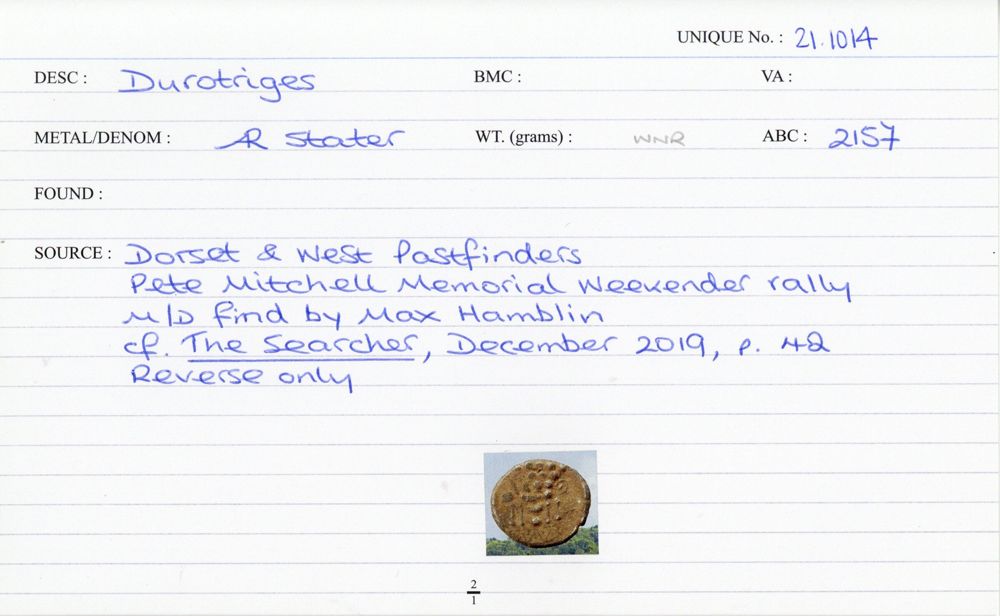 UNIQUE No. : 21.1014
DESC : Durotriges BMC : VA :
METAL/DENOM : AR Stater WT. (grams) : WNR ABC : 2157
FOUND :
SOURCE : Dorset & West Pastfinders
Pete Mitchell Memorial Weekender rally
M/D find by Max Hamblin
cf. The Searcher, December 2019, p. 42
Reverse only
2
1